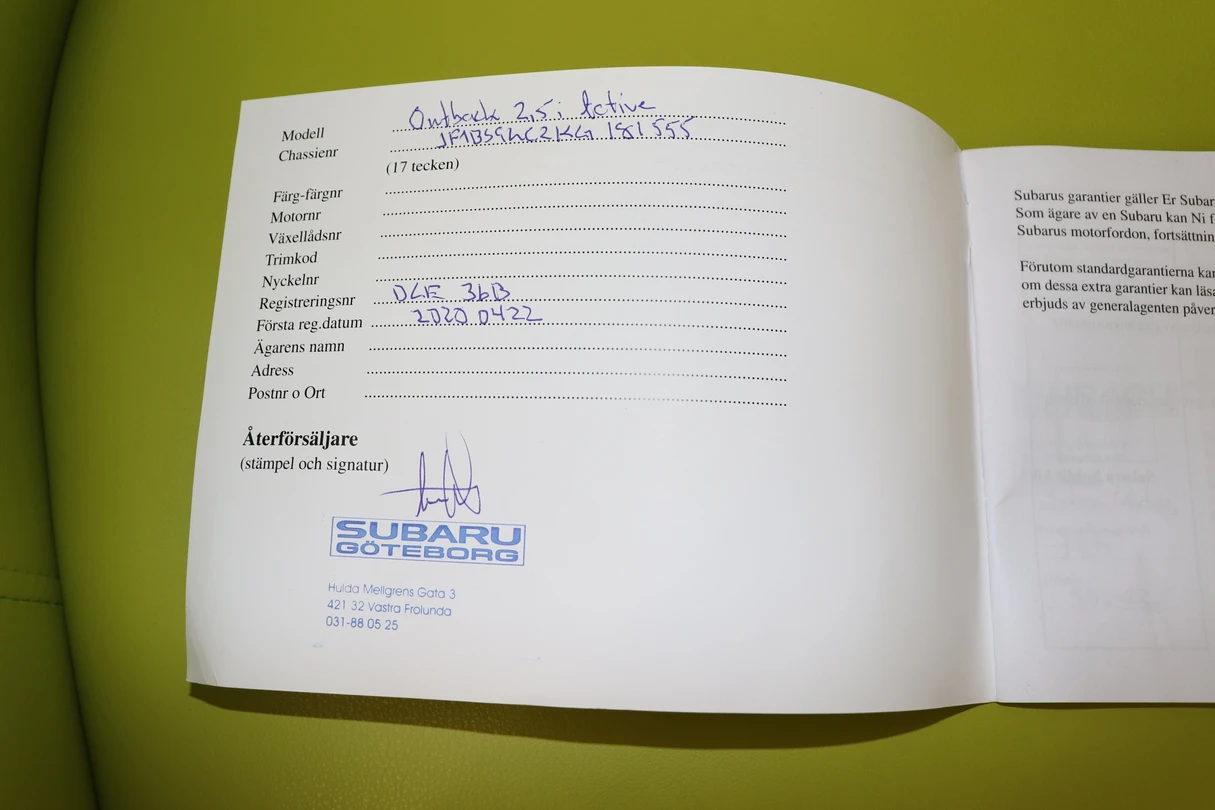 Modell Outback 2,5i Active
Chassienr JF1BS9LC2KG181555
(17 tecken)
Färg-färgnr
Motornr
Växellådsnr
Trimkod
Nyckelnr
Registreringsnr DLE 36B
Första reg.datum 2020 0422
Ägarens namn
Adress
Postnr o Ort
Återförsäljare
(stämpel och signatur)
SUBARU
GÖTEBORG
Hulda Mellgrens Gata 3
421 32 Västra Frölunda
031-88 05 25
Subarus garantier gäller Er Subar
Som ägare av en Subaru kan Ni f
Subarus motorfordon, fortsättnin
Förutom standardgarantierna kan
om dessa extra garantier kan läsa
erbjuds av generalagenten påver